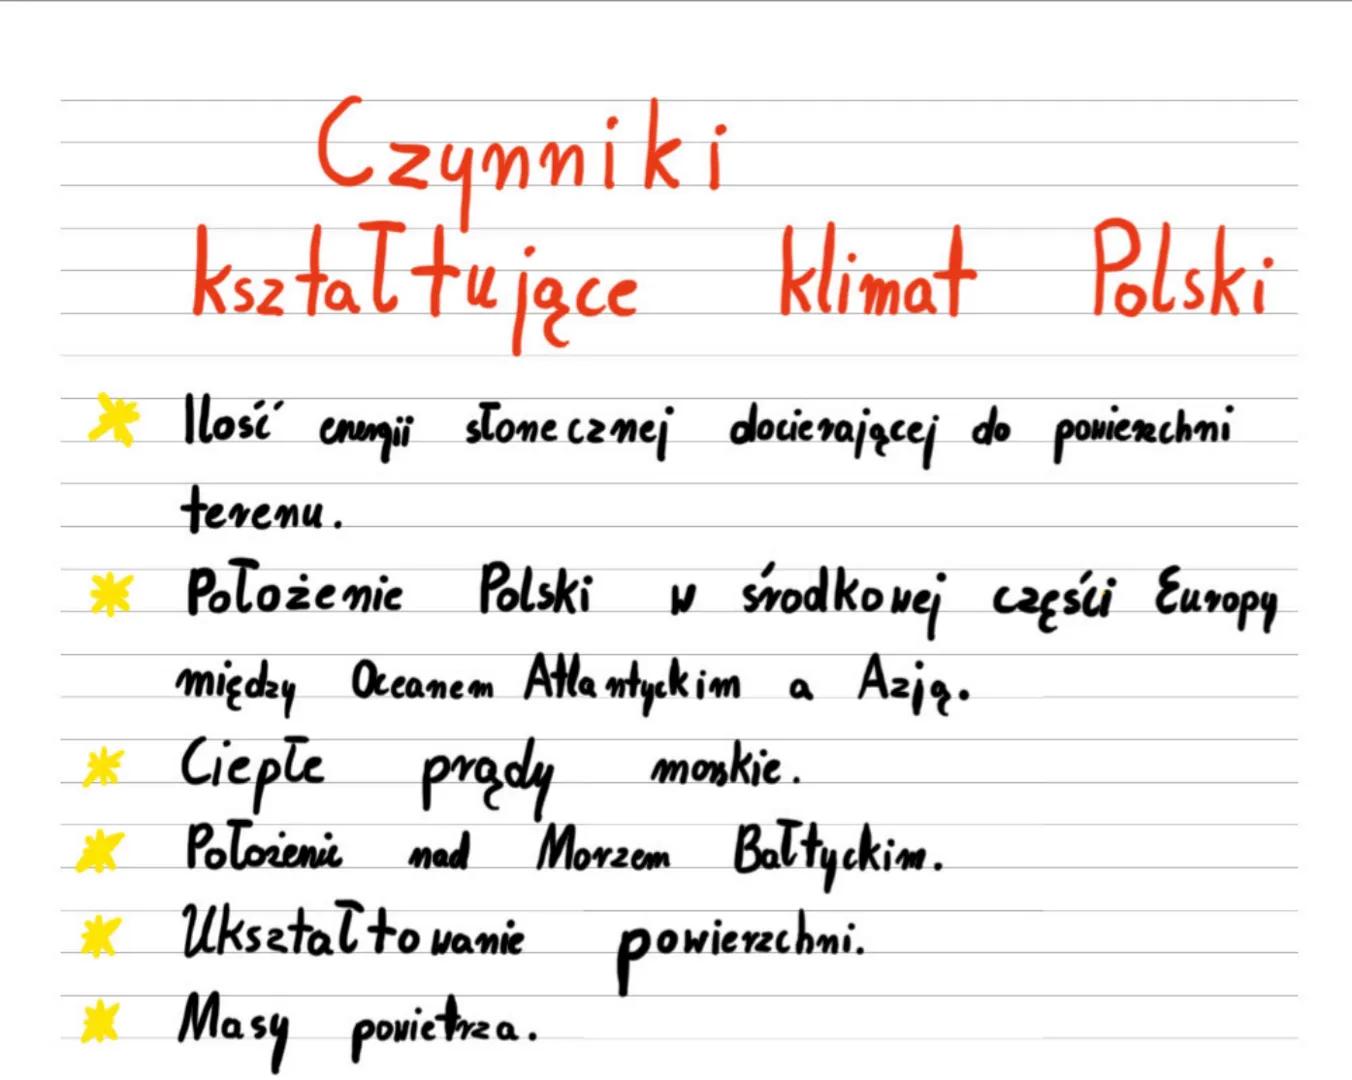 Czynniki
kształtujące klimat Polski
Ilość energii słonecznej docierającej do powierzchni
terenu.
Położenie Polski w środkowej części Europy
między Oceanem Atlantyckim a Azją.
Ciepłe prądy morskie.
Położenie nad Morzem Bałtyckim.
Ukształtowanie powierzchni.
Masy powietrza.